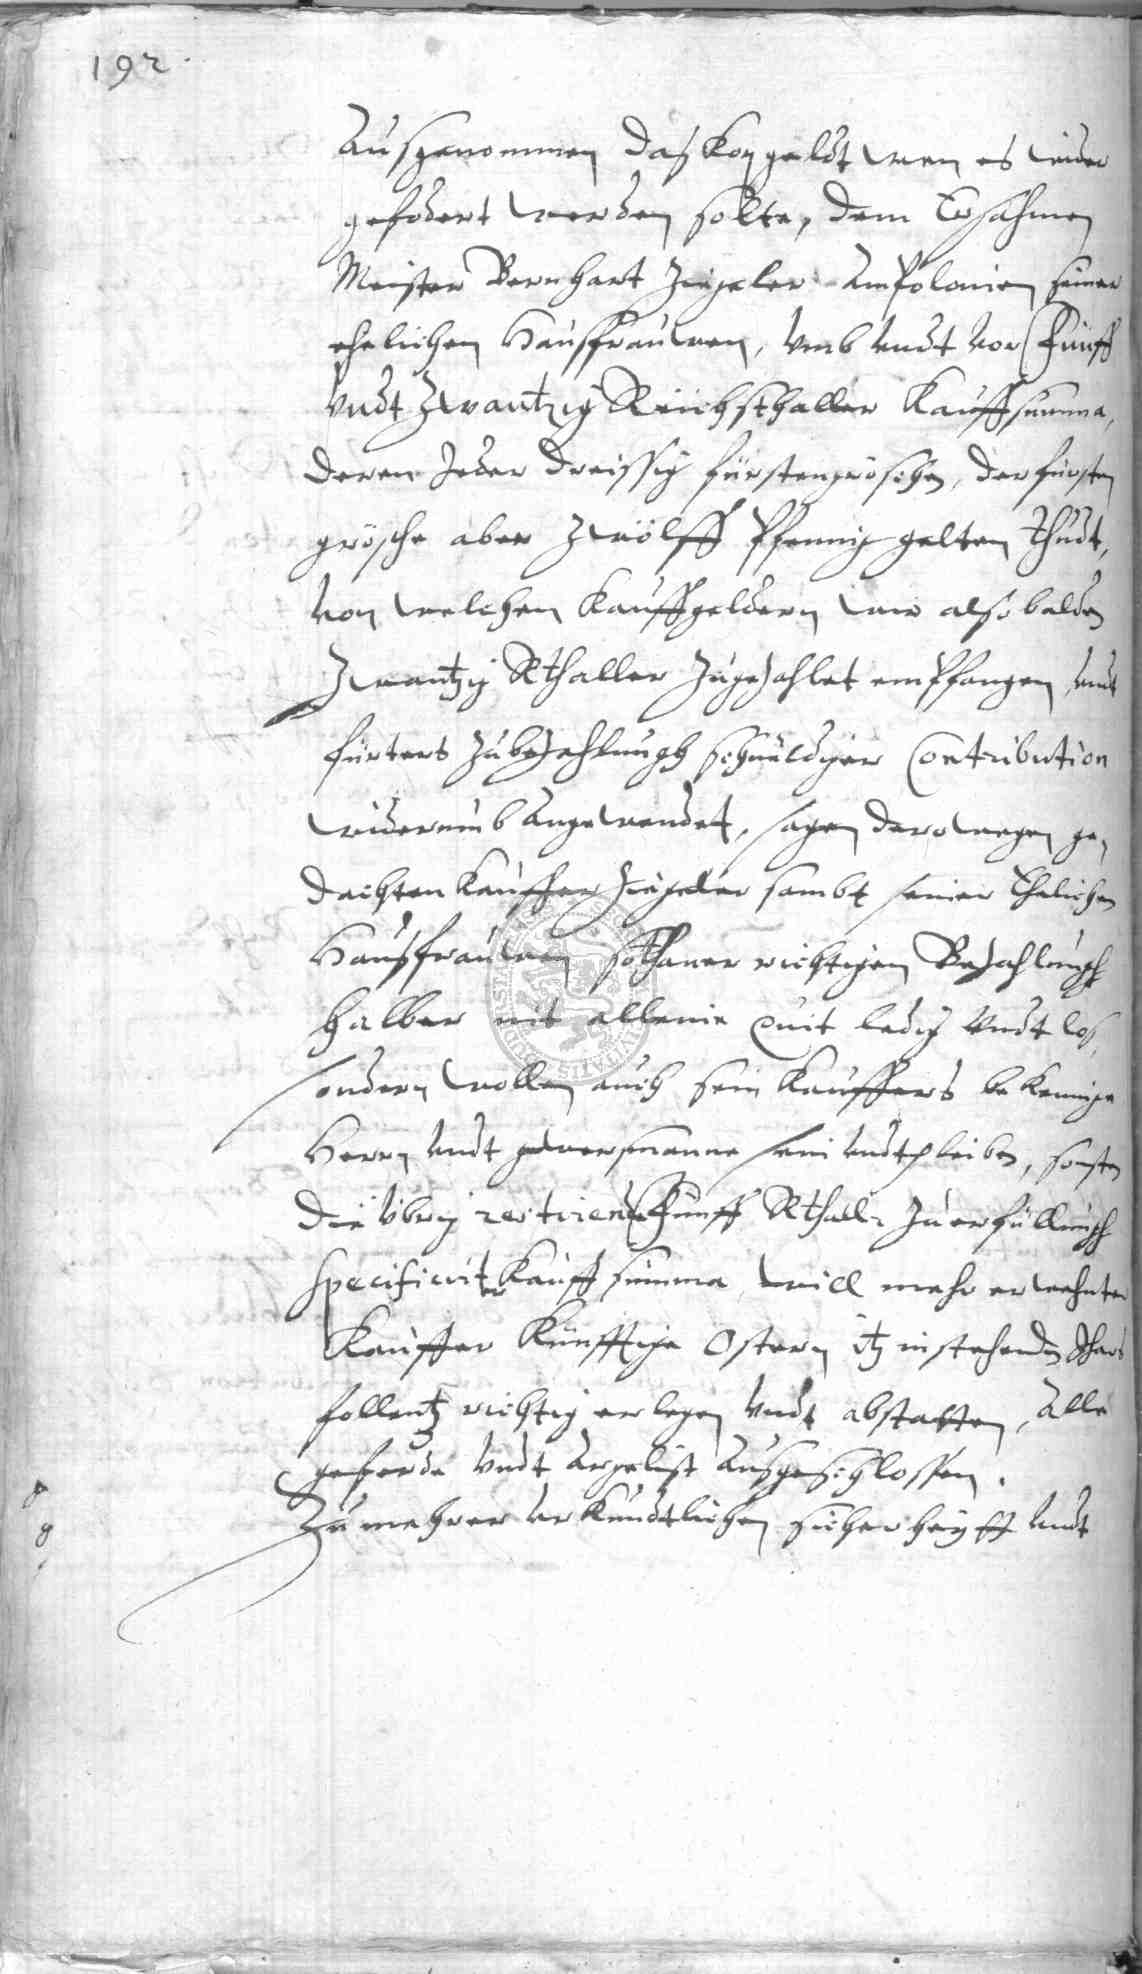 192.
Außgenommen das Kopgeldt wen es wider
gefodert werden solte, dem Ersahmen
Meister Bernhart Ziegeler Appolonien seiner
ehelichen Haußfrauwen, umb undt vor Fünff
undt Zwantzig Reichsthaller Kauffsumma,
deren Jeder dreissig fürstengröschen, der fürsten
grösche aber zwölff Pfennig gelten thudt,
von welchen Kauffgeldern wir alsobalden
Zwantzig Rthaller Zugezahlet empfangen undt
fürters Zubezahlungh schuldiger Contribution
widerumb angewendet, sagen derowegen ge,
dachten Kauffer Ziegeler sambt seiner Ehelichen
Haußfrauwen sothaner richtigen Bezahlungh
halber nit alleine quit ledig undt loß,
sondern wollen auch sein Kauffers bekennige
Herrn undt gewersmanne sein undt pleiben, sonsten
die übrig restirende Fünff Rthall. zu erfüllungh
specificirter Kauffsumma will mehr erwehnter
Kauffer Künfftige Ostern itz instehenden Jhars
follentz richtig erlegen undt abstatten, alle
geferde undt argelist außgeschlossen.
Zu mehrer urkundtlichen sicherheyt undt